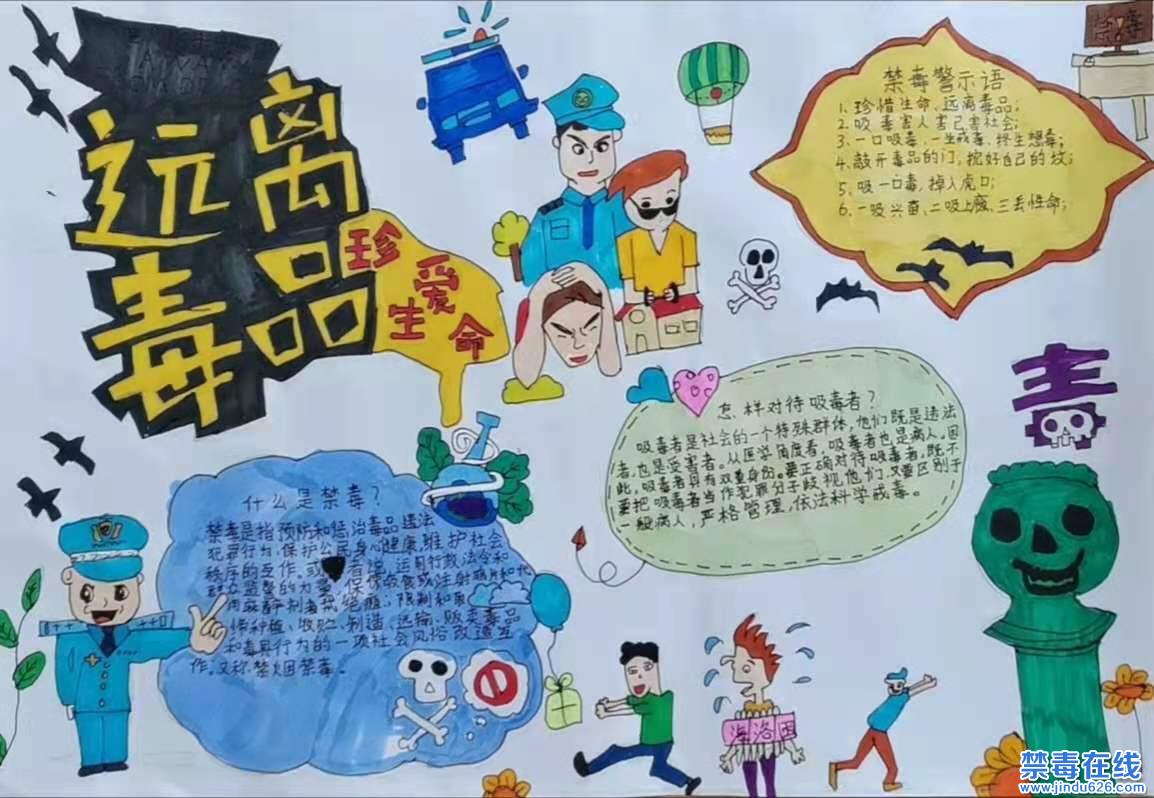 远离
毒品
珍爱
生命
禁毒警示语
1、珍惜生命、远离毒品;
2、吸毒害人害己害社会;
3、一口吸毒,一生戒毒,终生想毒;
4、敲开毒品的门,挖好自己的坟;
5、吸一口毒,掉入虎口;
6、一吸兴奋,二吸上瘾,三丢性命;
毒
怎样对待吸毒者?
吸毒者是社会的一个特殊群体,他们既是违法
者,也是受害者。从医学角度看,吸毒者也是病人,因
此,吸毒者具有双重身份。要正确对待吸毒者,既不
要把吸毒者当作犯罪分子歧视他们,又要区别于
一般病人,严格管理,依法科学戒毒。
什么是禁毒?
禁毒是指预防和惩治毒品违法
犯罪行为,保护公民身心健康,维护社会
秩序的互作。或者说,运用行政法令和
群众监督的力 吸食或注射鸦片和代
用麻醉剂者 绝瘾;限制和取
缔种植、收贮、制造、运输、贩卖毒品
和毒具行为的一项社会风俗改造互
作。又称禁烟禁毒。
海洛因
禁毒在线
www.jindu626.com